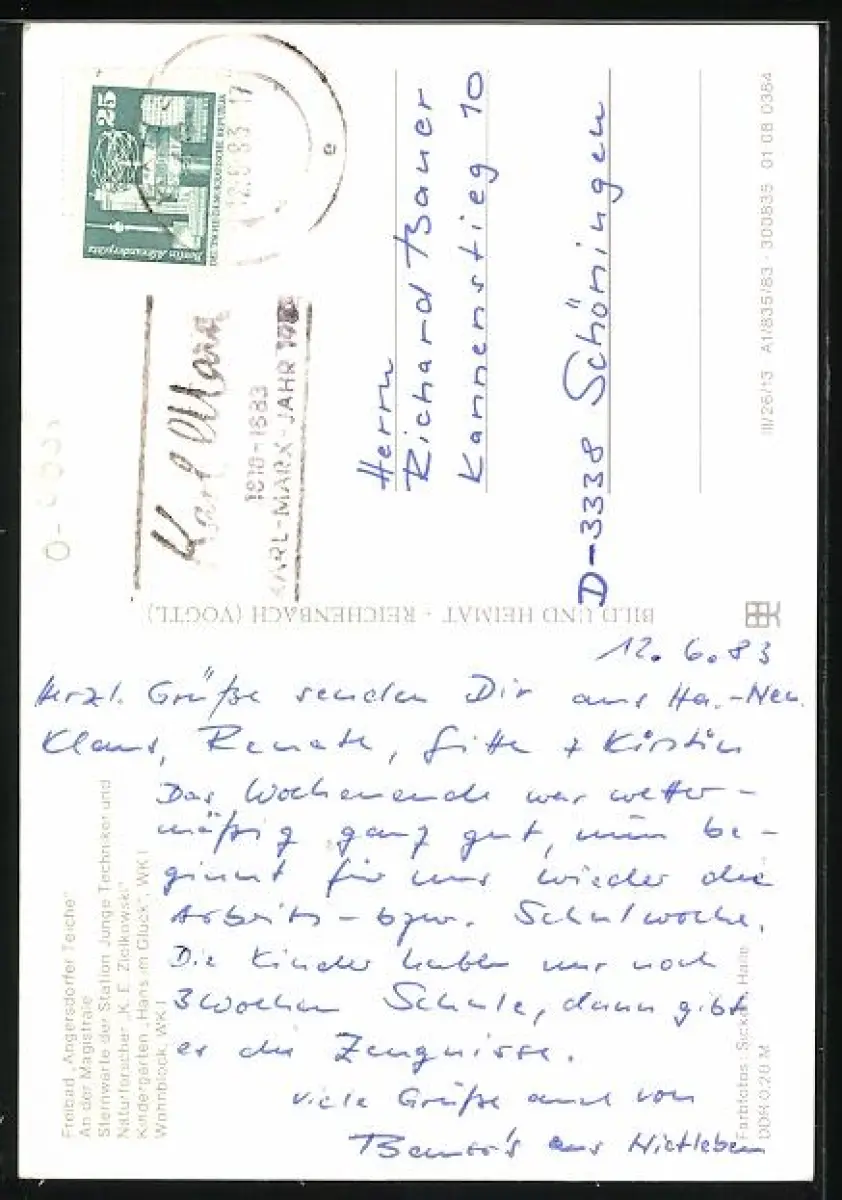 12.6.83
Herzl. Grüße senden Dir aus Ha.-Neu.
Klaus, Renate, Gitte + Kirstin
Das Wochenende war wetter-
mäßig ganz gut, nun be-
ginnt für uns wieder die
Arbeits- bzw. Schulwoche.
Die Kinder haben nur noch
3 Wochen Schule, dann gibt
es die Zeugnisse.
Viele Grüße auch von
Bauer's aus Nietleben
Herrn
Richard Bauer
Kannenstieg 10
D-3338 Schöningen
25
Berlin Alexanderplatz
DEUTSCHE DEMOKRATISCHE REPUBLIK
83-17
e
Karl Marx
1818-1883
KARL-MARX-JAHR
BILD UND HEIMAT · REICHENBACH (VOGTL)
III/26/13 A1/835/83 · 300835 01 08 0384
Freibad „Angersdorfer Teiche"
An der Magistrale
Sternwarte der Station Junge Techniker und
Naturforscher „K. E. Ziolkowski"
Kindergarten „Hans im Glück", WK I
Wohnblock, WK I
Farbfotos: Halle
DDR 0,20 M